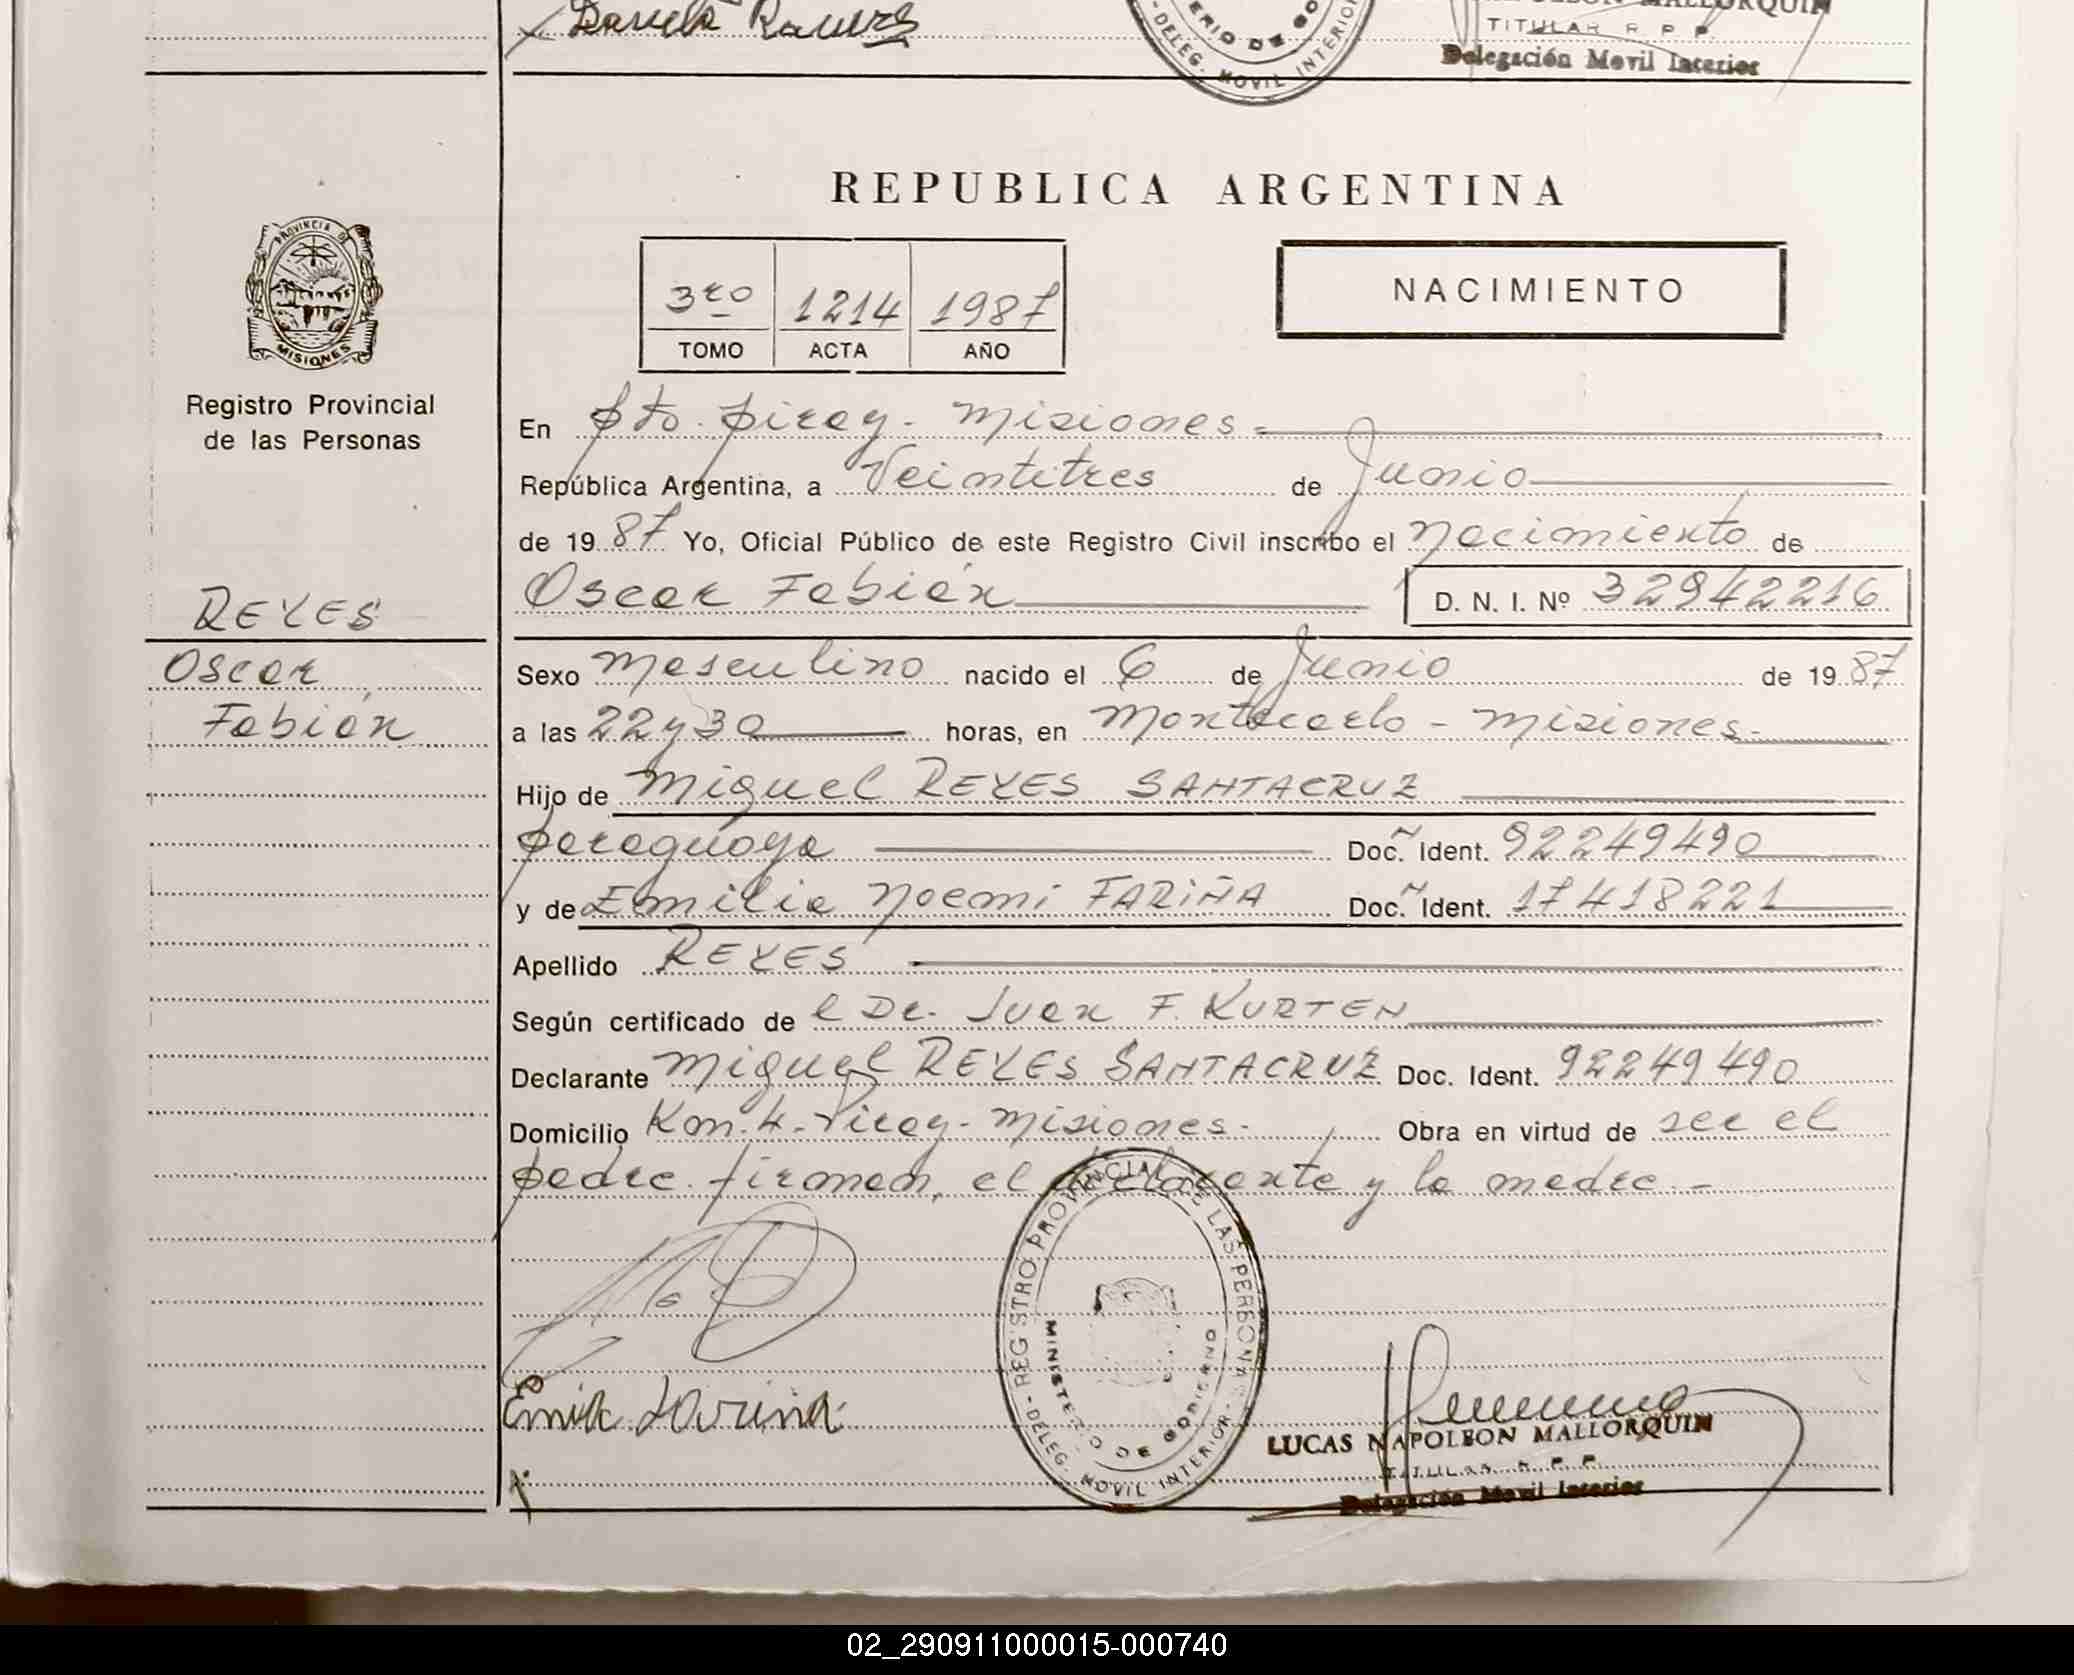 Daniela Ramirez
TITULAR R. P. P.
Delegación Movil Interior
DELEG. MOVIL INTERIOR
REPUBLICA ARGENTINA
PROVINCIA DE
MISIONES
3ro 1214 1987
TOMO ACTA AÑO
NACIMIENTO
Registro Provincial
de las Personas
En pto. piray - Misiones -
República Argentina, a Veintitres de Junio
de 1987 Yo, Oficial Público de este Registro Civil inscribo el Nacimiento de
Oscar Fabián D. N. I. Nº 32942216
REYES
Oscar
Fabián
Sexo Masculino nacido el 6 de Junio de 1987
a las 22 y 30 horas, en Montecarlo - Misiones -
Hijo de Miguel REYES SANTACRUZ
paraguaya Doc. Ident. 92249490
y de Emilia Noemi FARIÑA Doc. Ident. 17418221
Apellido REYES
Según certificado de l Dr. Juan F. KURTEN
Declarante Miguel REYES SANTACRUZ Doc. Ident. 92249490
Domicilio Km. 4 - Piray - Misiones - Obra en virtud de ser el
padre. firman, el declarante y la madre. -
REGISTRO PROVINCIAL DE LAS PERSONAS
MINISTERIO DE GOBIERNO
- DELEG. MOVIL INTERIOR -
LUCAS NAPOLEON MALLORQUIN
TITULAR R. P. P.
Delegación Movil Interior
02_290911000015-000740